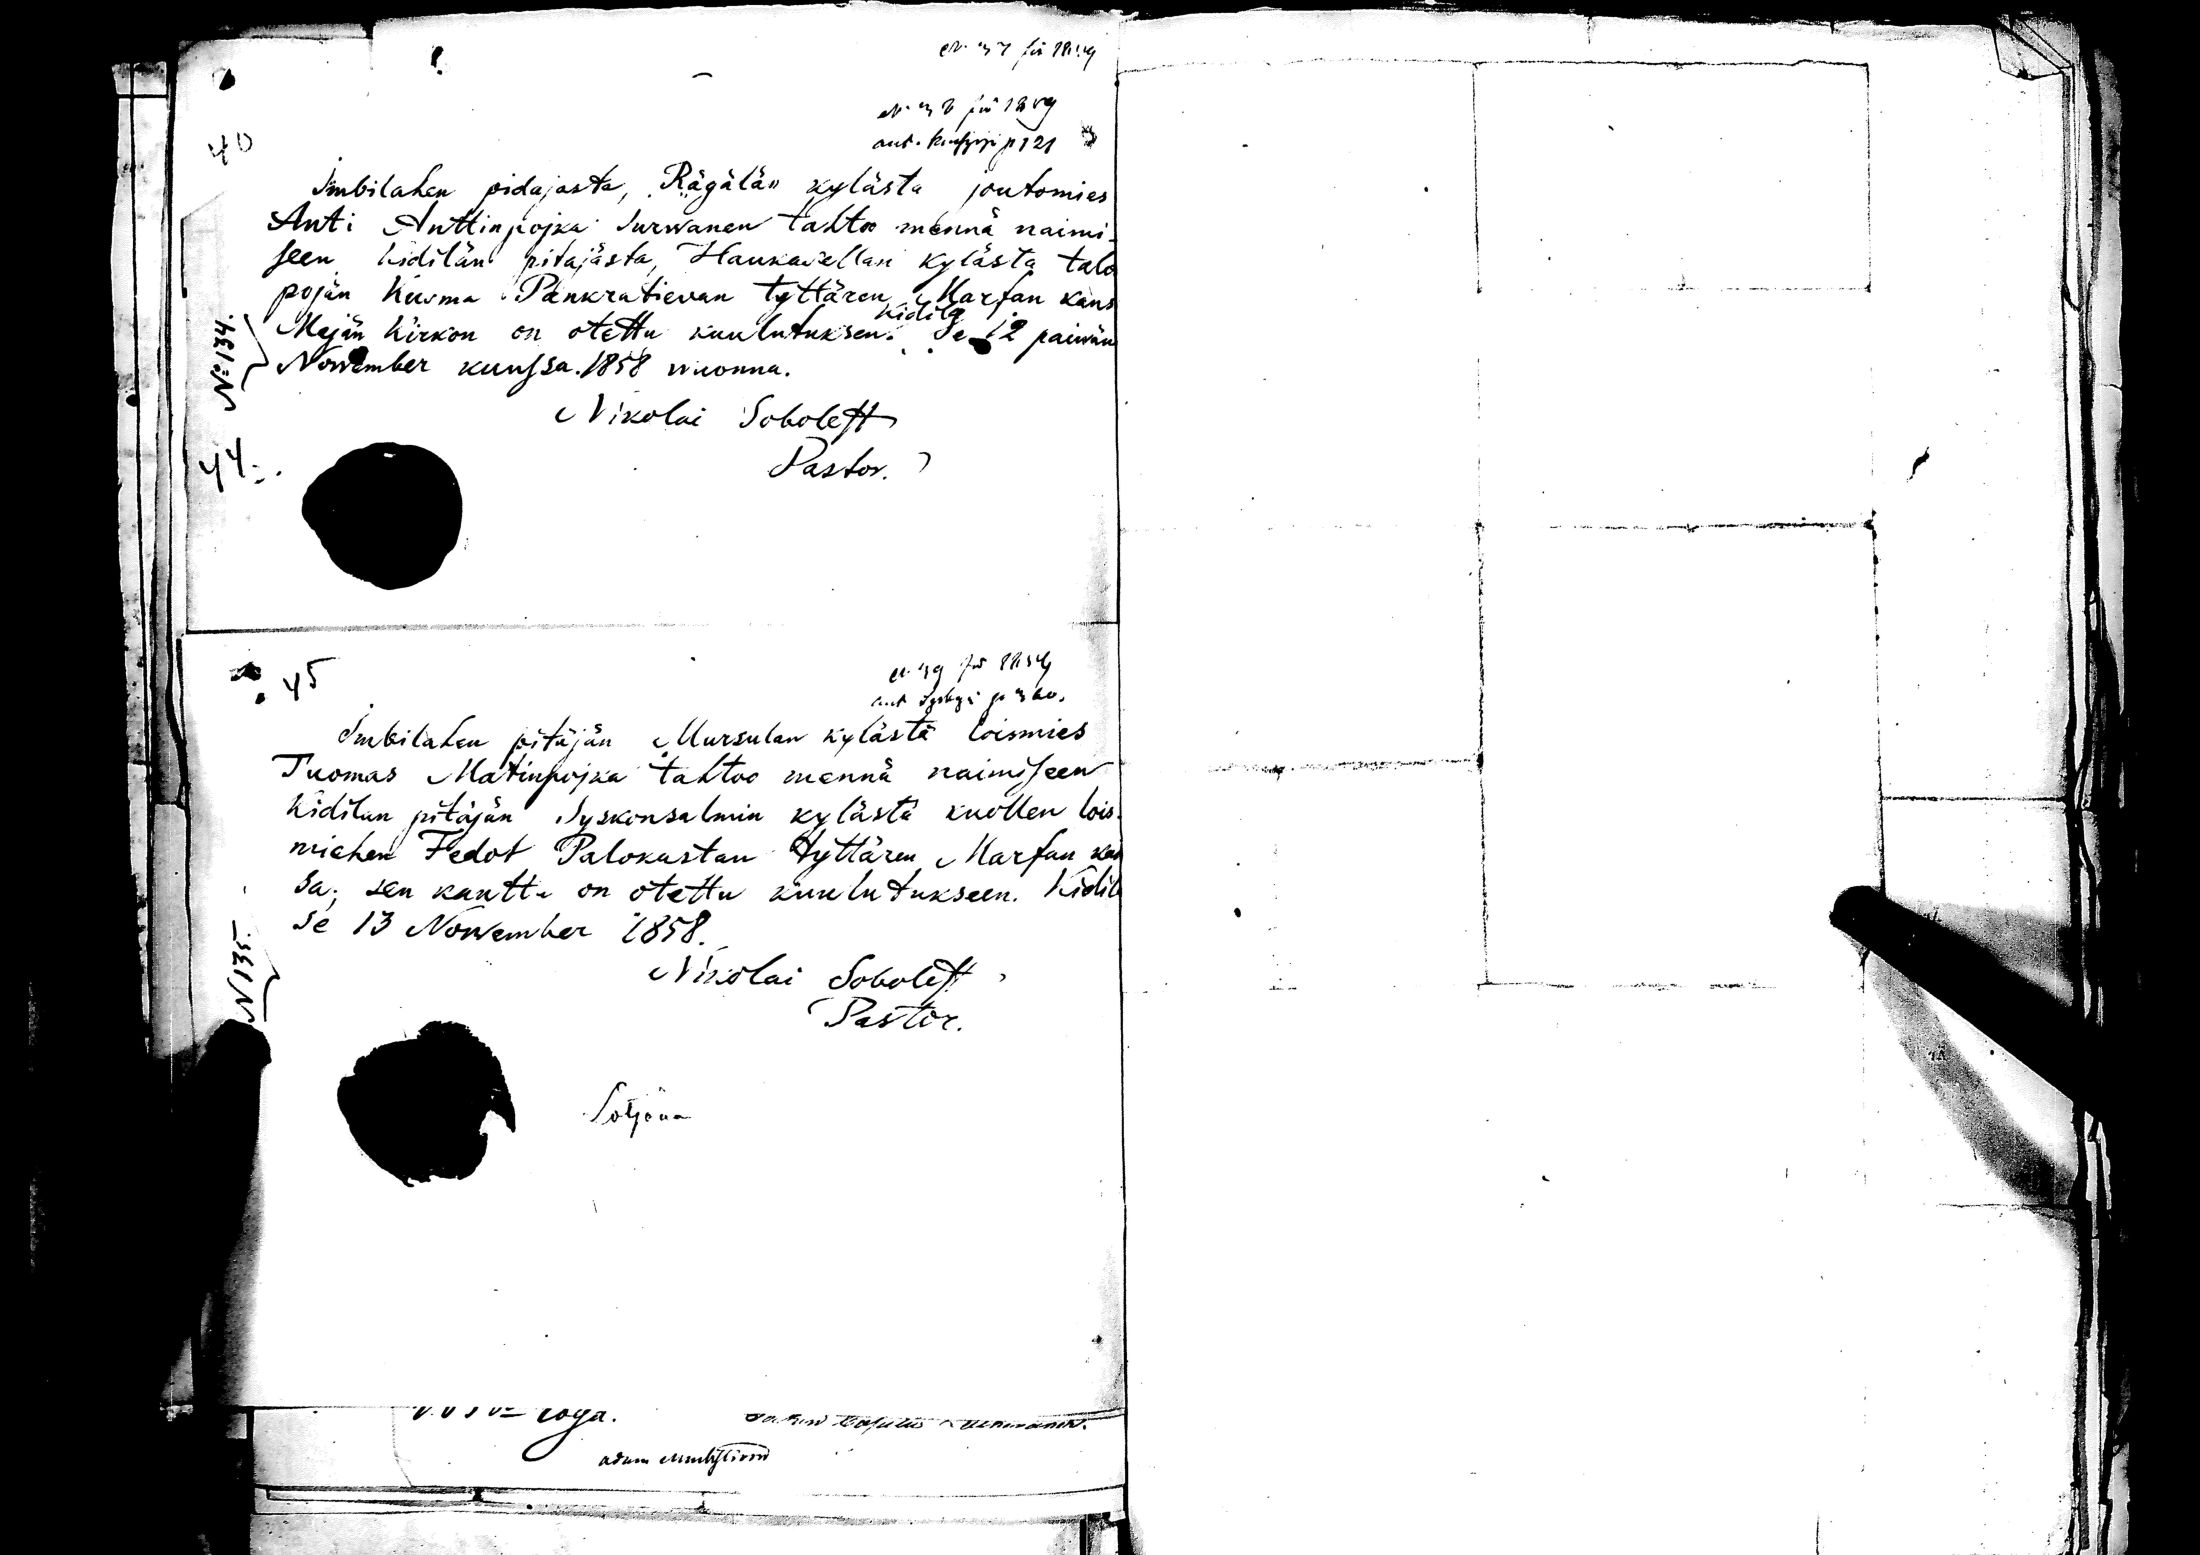 40
Imbilahen pidajasta, Rägälän kylästa joutomies
Anti Anttinpojka Surwanen tahtoo mennä naimi-
seen Kidilän pitajästa, Haukasellan kylästa talo
pojän Kusma Pankratievan tyttären Marfan kans
Mejän Kirkon on otettu kuulutuksen. Kidilä Se 12 paiwän
November kuussa. 1858 wuonna.
Nº: 134.
Nikolai Soboleff
Pastor.
44
45
Imbilahen pitäjän Mursulan kylästä loismies
Tuomas Matinpojka tahtoo mennä naimiseen
Kidilan pitäjän Syskonsalmin kylästä kuollen lois-
miehen Fedot Palokastan tyttären Marfan kan
sa; sen kautta on otettu kuulutukseen. Kidil
Se 13 November 1858.
N 135.
Nikolai Soboleff
Pastor.